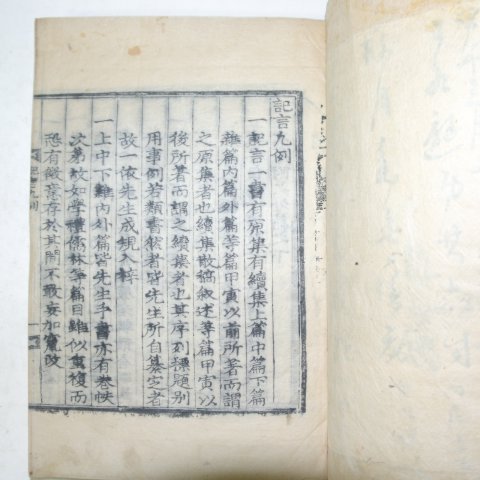 記言凡例
一記言一書有原集有續集上篇中篇下篇
雜篇內篇外篇等篇甲寅以前所著而謂
之原集者也續集散稿敍述等篇甲寅以
後所著而謂之續集者也其序列標題別
用事例若類書然者皆先生所自纂定者
故一依先生成規入梓
一上中下雜內外篇皆先生手書亦有卷帙
次第故如學禮儒林等篇目雖似重複而
恐有微意存於其間不敢妄加竄改